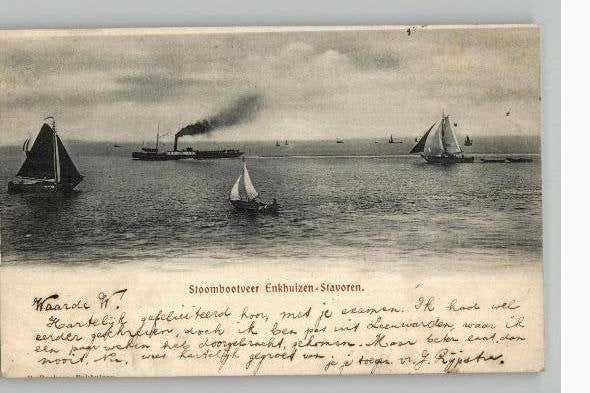 Stoombootveer Enkhuizen-Stavoren.
Waarde W!
Hartelijk gefeliciteerd hoor, met je examen. Ik had wel
eerder geschreven, doch ik ben pas uit Leeuwarden, waar ik
een paar weken heb doorgebracht, gekomen. Maar beter laat, dan
nooit. Nu. wees hartelijk gegroet van je je toegen. vr. J. Rijpstra.